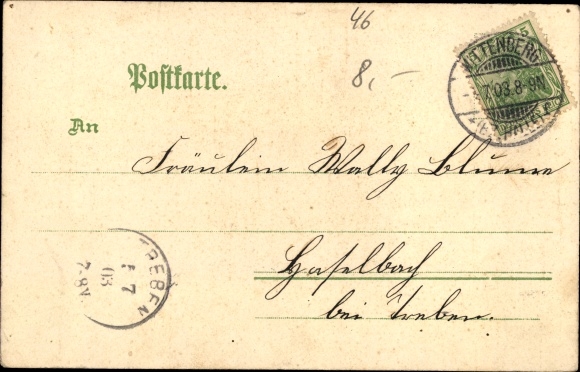 46
8,-
Postkarte.
An
Fräulein Wally Blume
Haselbach
bei Treben.
5
WITTENBERG
7.03.8-9N
(BZ. HALLE)
TREBEN
5 7
03
7-8N